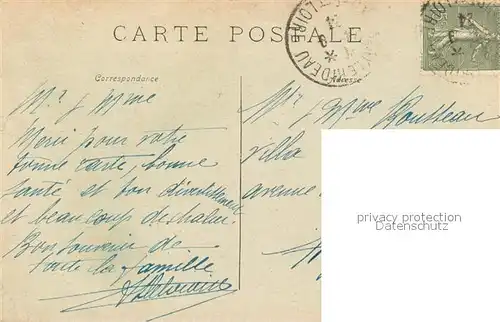 CARTE POSTALE
Correspondance
Adresse
Mr & Mme
Merci pour votre
bonne carte, bonne
santé et bon divertissement
et beaucoup de chaleur.
Bon souvenir de
toute la famille
Mr & Mme Routteau
villa
avenue
privacy protection
Datenschutz
LOIRE